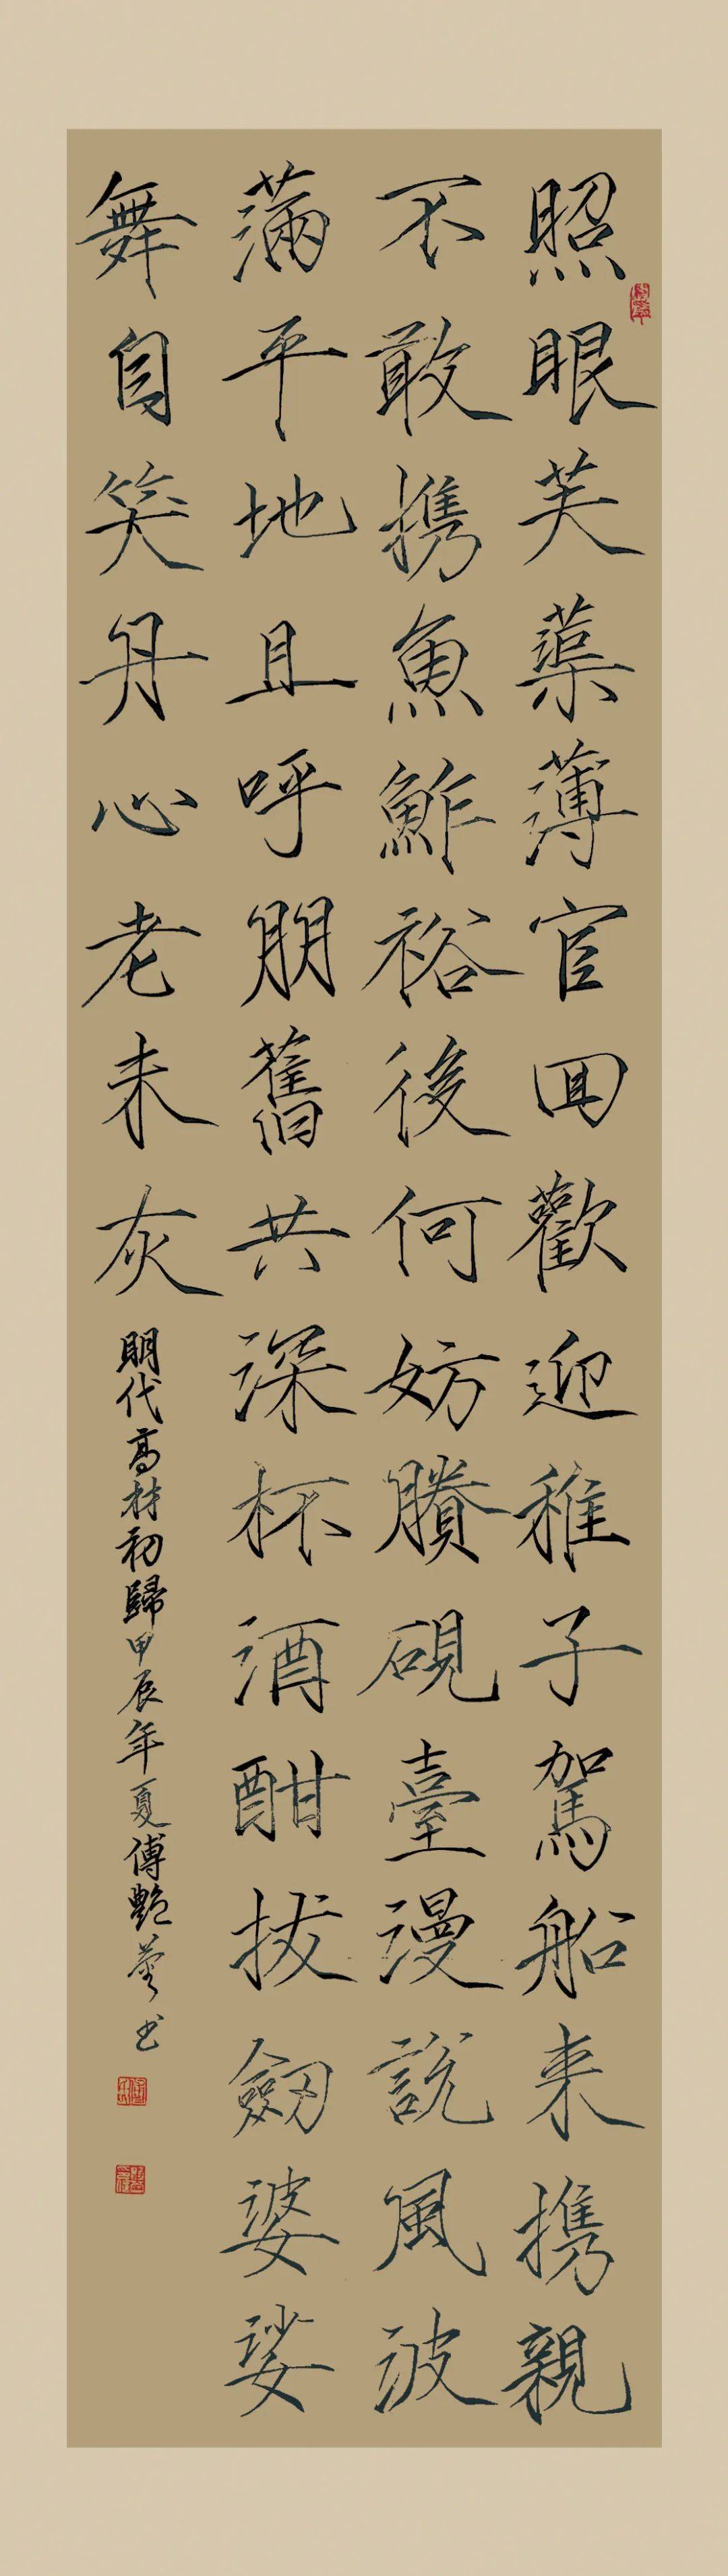 照眼芙蕖薄宦回歡迎稚子駕船来攜親
不敢攜魚鮓裕後何妨賸硯臺漫説風波
滿平地且呼朋舊共深杯酒酣拔劒婆娑
舞自笑丹心老未灰
明代高材初歸甲辰年夏傅艷華书